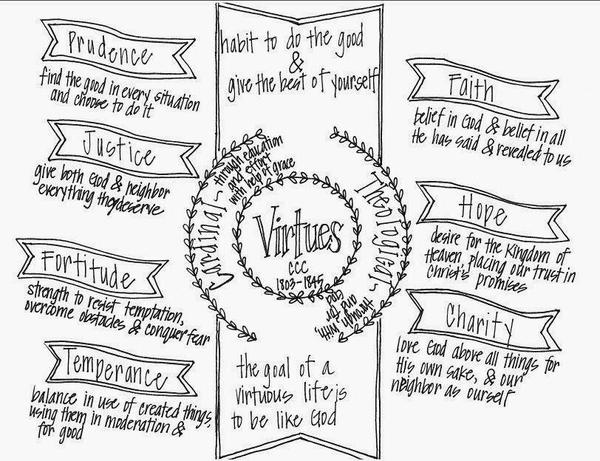 habit to do the good
&
give the best of yourself
Prudence
find the good in every situation
and choose to do it
Justice
give both God & neighbor
everything they deserve
Fortitude
strength to resist temptation,
overcome obstacles & conquer fear
Temperance
balance in use of created things,
using them in moderation &
for good
Cardinal ~
through education
and effort
with help of grace
Virtues
CCC
1803-1845
Theological ~
through, with,
and for
God
the goal of a
virtuous life is
to be like God
Faith
belief in God & belief in all
He has said & revealed to us
Hope
desire for the Kingdom of
Heaven, placing our trust in
Christ's promises
Charity
love God above all things for
His own sake, & our
neighbor as ourself